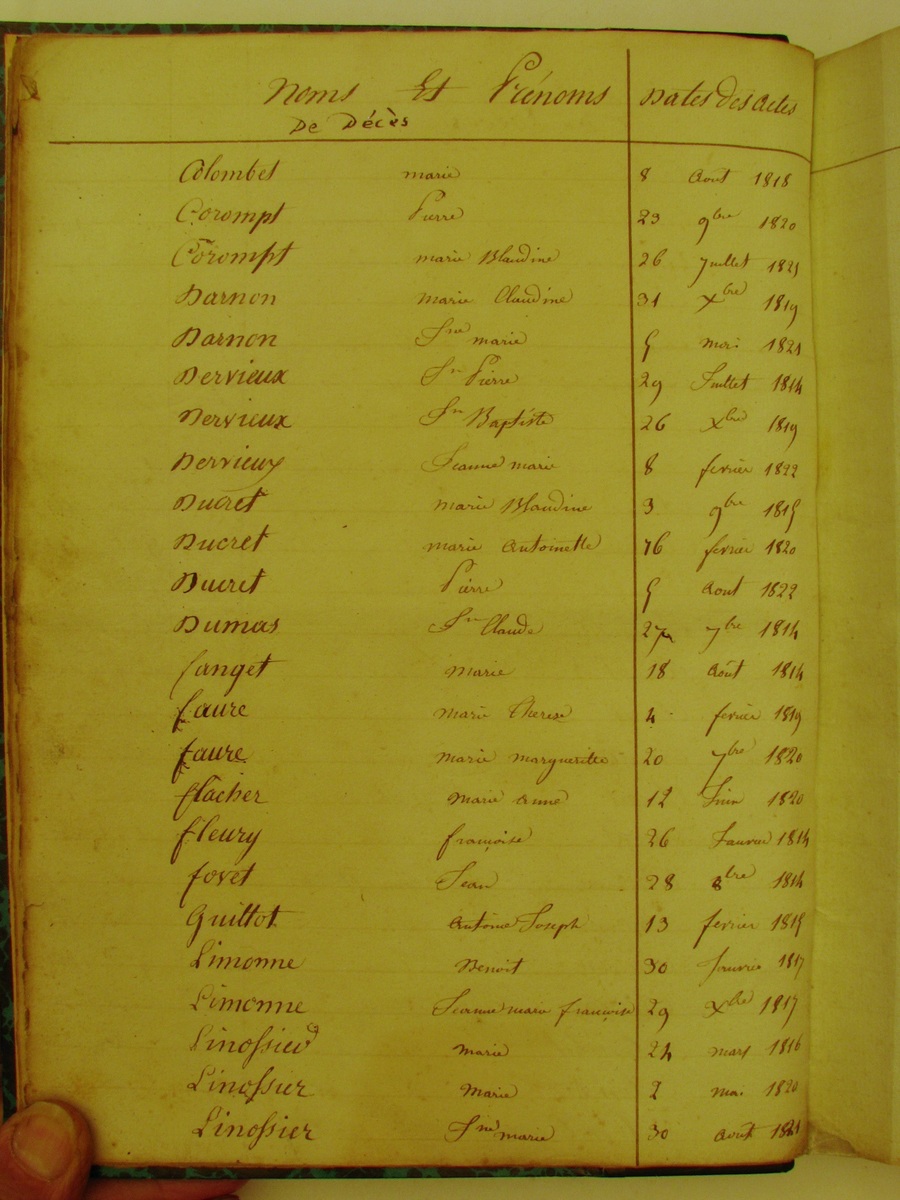 Noms Et Prénoms Dates des actes
De Décès
Colombet marie 8 Aout 1818
Corompt Pierre 23 9bre 1820
Corompt marie Blaudine 26 Juillet 1821
Darnon marie Claudine 31 Xbre 1819
Darnon Jne marie 5 1821
Dervieux Jn Pierre 29 Juillet 1814
Dervieux Jn Baptiste 26 Xbre 1819
Dervieux Jeanne marie 8 fevrier 1822
Ducret marie Blandine 3 9bre 1815
Ducret marie Antoinette 16 fevrier 1820
Ducret Pierre 5 Aout 1822
Dumas Jn Claude 27 7bre 1814
fanget marie 18 Août 1814
faure marie therese 4 fevrier 1819
faure marie marguerite 20 7bre 1820
flacher marie anne 12 Juin 1820
fleury françoise 26 Janvier 1814
fovet Jean 28 8bre 1814
Guillot Antoine Joseph 13 fevrier 1815
Limonne Benoit 30 Janvier 1817
Limonne Jeanne marie françoise 29 Xbre 1817
Linossier marie 24 mars 1816
Linossier marie 2 mai 1820
Linossier Jne marie 30 août 1821